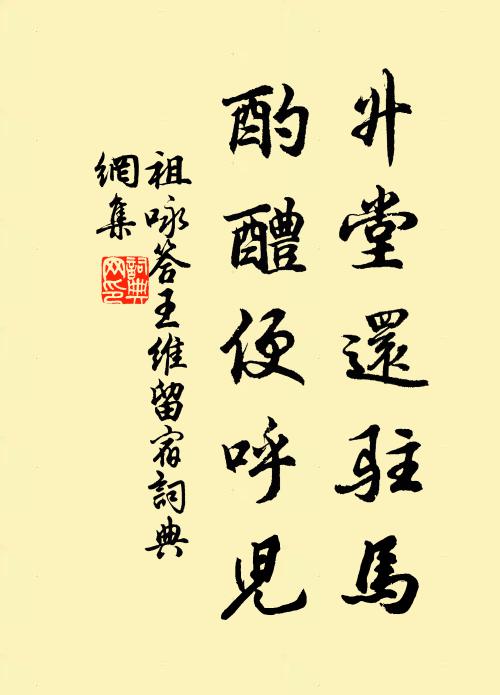 升堂還駐馬
酌醴便呼兒
祖咏答王維留宿詞典
網集
詞典網印